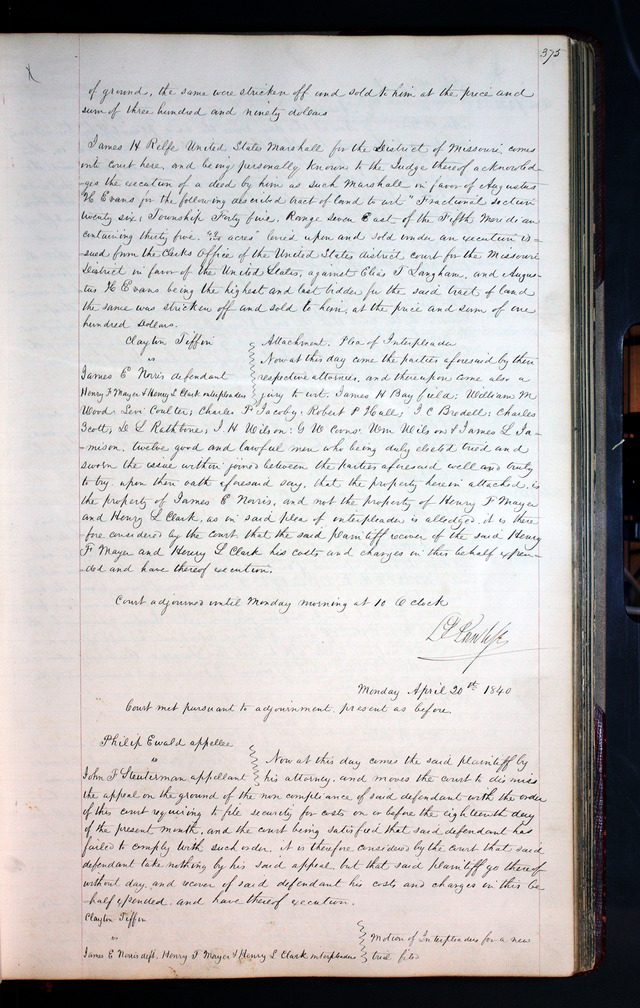 375
of ground, the same were stricken off and sold to him at the price and
sum of three hundred and ninety dollars
James H Relfe United States Marshall for the District of Missouri comes
into court here, and being personally known to the Judge thereof acknowled-
-ges the execution of a deed by him as such Marshall in favor of Augustus
H Evans for the following described tract of land to wit "Fractional section
twenty six, Township Forty five. Range Seven East of the Fifth Meridian
containing thirty five acres" levied upon and sold under an execution is-
sued from the Clerks office of the United States district court for the Missouri
District in favor of the United States, against Elias T Langham, and Augus-
tus H Evans being the highest and last bidder for the said tract of land
the same was stricken off and sold to him, at the price and sum of one
hundred Dollars.
Clayton Tiffin
vs
James E Noris defendant
Henry F Mayer & Henry L Clark interpleaders
Attachment. Plea of Interpleader
Now at this day come the parties aforesaid by their
respective attornies, and thereupon come also a
jury to wit. James H Bayfield; William M
Wood. Levi Coulter; Charles P Jacoby. Robert P Hall; J C Bredell; Charles
Scott; D L Rathbone; J H Wilson; G W Corns. Wm Wilson & James L Ja-
mison. twelve good and lawful men who being duly elected tried and
sworn the issue within joined between the parties aforesaid well and truly
to try. upon their oath aforesaid say, that the property herein attached, is
the property of James E Norris, and not the property of Henry F Mayer
and Henry L Clark, as in said plea of interpleader is alledged, it is there
fore considered by the court that the said plaintiff recover of the said Henry
F Mayer and Henry L Clark his costs and charges in this behalf expen-
ded and have thereof execution.
Court adjourned until Monday morning at 10 O clock
Monday April 20th 1840
Court met pursuant to adjournment. present as before
Philip Ewald appellee
vs
John F Steuterman appellant
Now at this day comes the said plaintiff by
his attorney, and moves the court to dismiss
the appeal on the ground of the non compliance of said defendant with the order
of this court requiring to file security for costs on or before the eighteenth day
of the present month, and the court being satisfied that said defendant has
failed to comply with such order. it is therefore considered by the court that said
defendant take nothing by his said appeal, but that said plaintiff go thereof
without day, and recover of said defendant his costs and charges in this be-
half expended. and have thereof execution.
Clayton Tiffin
vs
James E Norris deft. Henry F Mayer & Henry L Clark interpleaders
Motion of Interpleaders for a new
trial filed